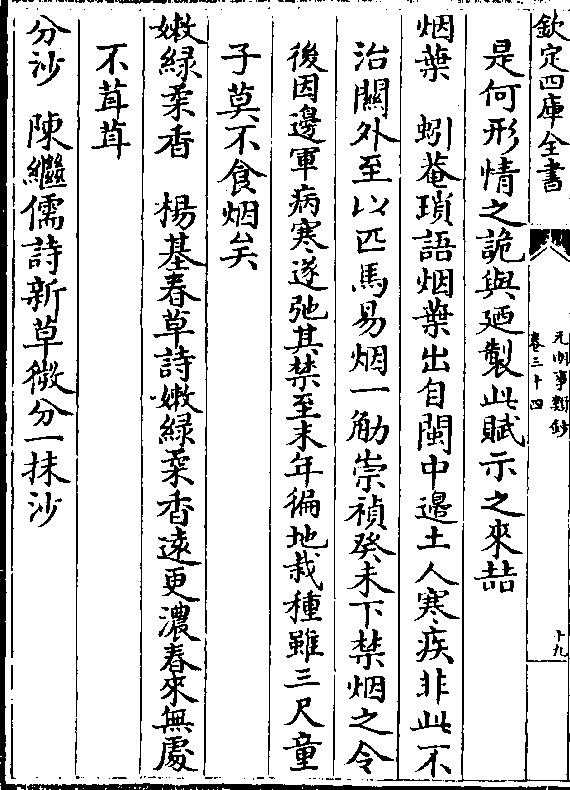 欽定四庫全書
元明事類鈔
卷三十四
十九
是何形情之詭與廼製此賦示之來喆
烟葉　蚓菴瑣語烟葉出自閩中邊土人寒疾非此不
治關外至以匹馬易烟一觔崇禎癸未下禁烟之令
後因邊軍病寒遂弛其禁至末年徧地栽種雖三尺童
子莫不食烟矣
嫩緑柔香　楊基春草詩嫩緑柔香遠更濃春來無處
不茸茸
分沙　陳繼儒詩新草微分一抹沙